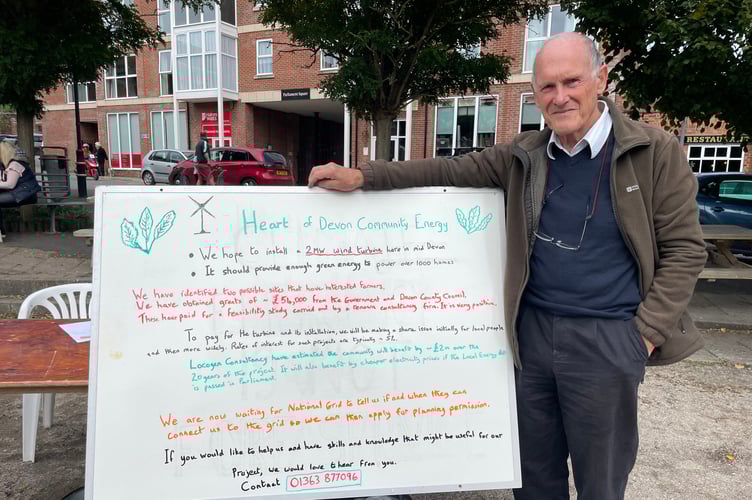 Parliament Square
RESTAURANT
Heart of Devon Community Energy
• We hope to install a 2MW wind turbine here in mid Devon
• It should provide enough green energy to power over 1000 homes
We have identified two possible sites that have interested farmers.
We have obtained grants of ~ £56,000 from the Government and Devon County Council.
These have paid for a feasibility study carried out by a renown consultancy firm. It is very positive.
To pay for the turbine and its installation, we will be making a share issue initially for local people
and then more widely. Rates of interest for such projects are typically ~ 5%.
Locogen Consultancy have estimated the community will benefit by ~ £2m over the
20 years of the project. It will also benefit by cheaper electricity prices if the Local Energy Bill
is passed in Parliament.
We are now waiting for National Grid to tell us if and when they can
connect us to the grid so we can then apply for planning permission.
If you would like to help us and have skills and knowledge that might be useful for our
Project, we would love to hear from you.
Contact 01363 877096